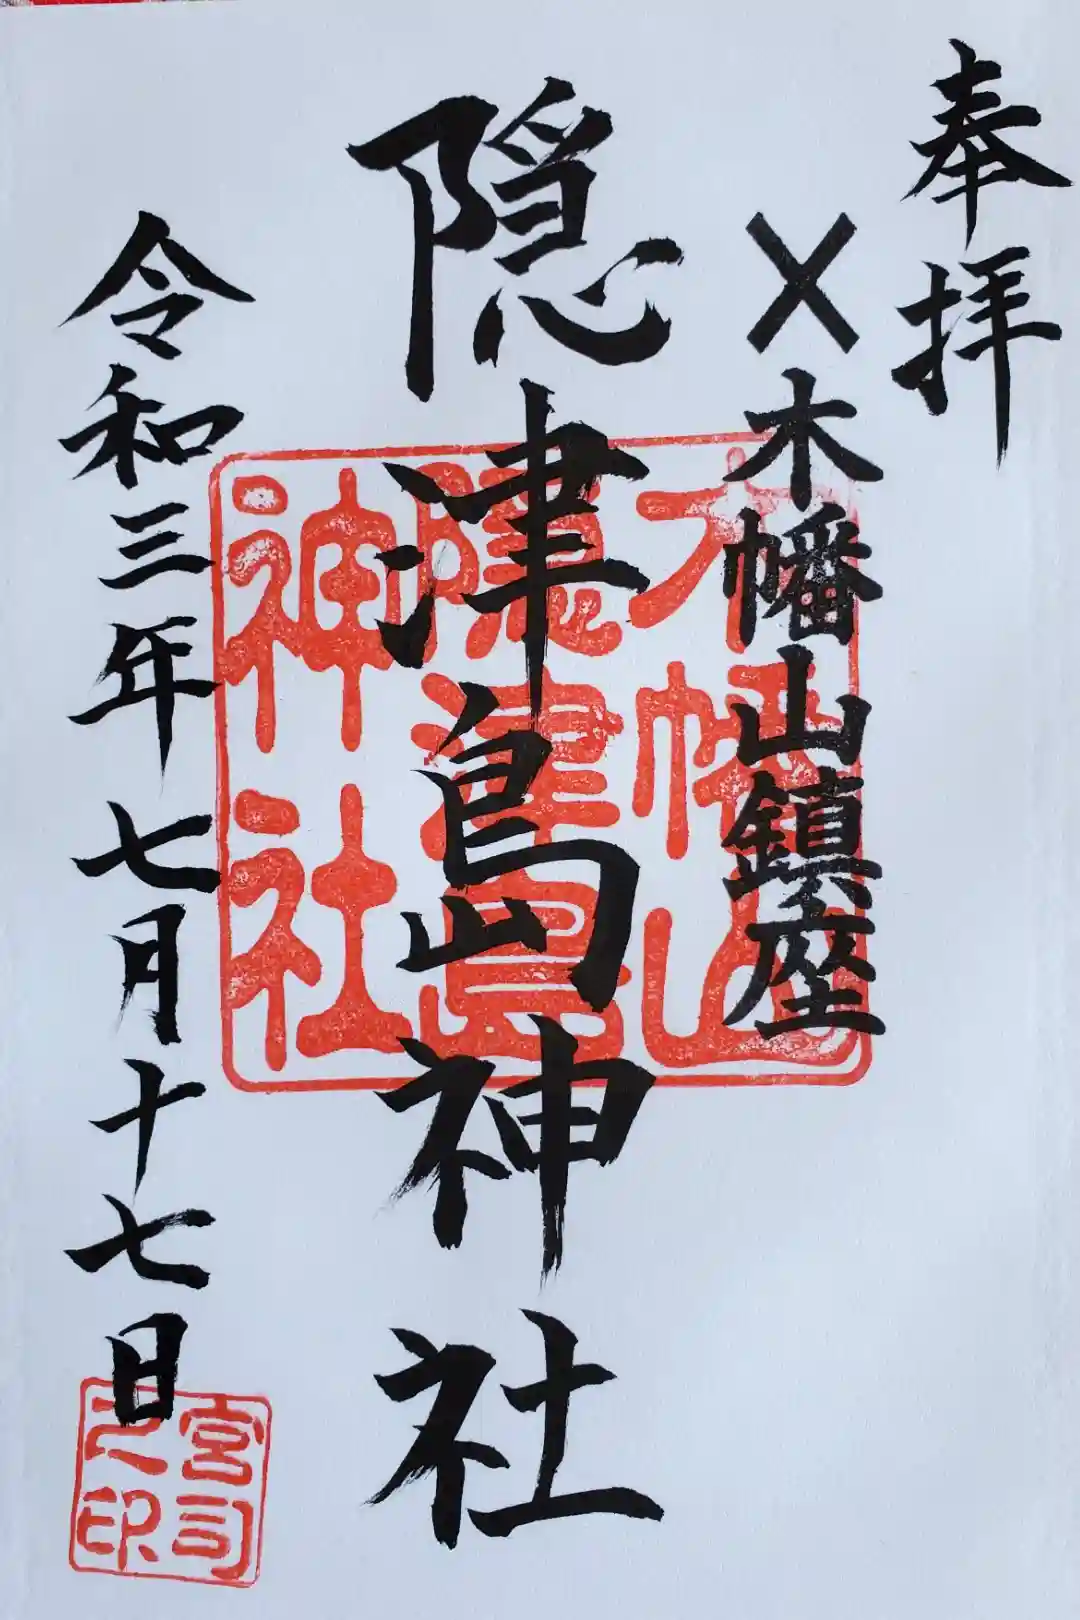 奉拝
×木幡山鎮座
隠津島神社
令和三年七月十七日
木幡山
隠津島
神社
宮司
之印